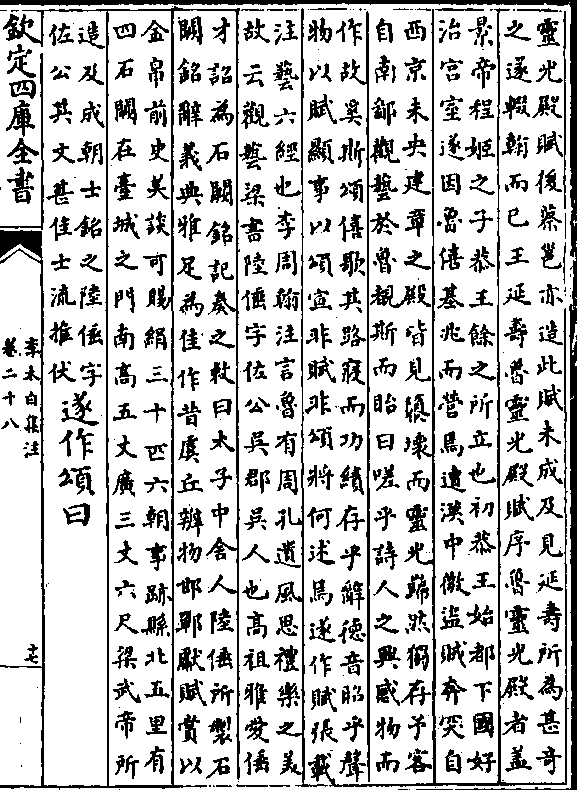 靈光殿賦後蔡邕亦造此賦未成及見延壽所為甚奇
之遂輟翰而已王延壽魯靈光殿賦序魯靈光殿者蓋
景帝程姬之子恭王餘之所立也初恭王始都下國好
治宮室遂因魯僖基兆而營焉遭漢中微盜賊奔突自
西京未央建章之殿皆見隳壞而靈光巋然獨存予客
自南鄙觀藝於魯覩斯而眙曰嗟乎詩人之興感物而
作故奚斯頌僖歌其路寢而功績存乎辭德音昭乎聲
物以賦顯事以頌宣非賦非頌將何述焉遂作賦張載
注藝六經也李周翰注言魯有周孔遺風思禮樂之美
故云觀藝梁書陸倕字佐公吳郡吳人也高祖雅愛倕
才詔為石闕銘記奏之敕曰太子中舍人陸倕所製石
闕銘辭義典雅足為佳作昔虞丘辨物邯鄲獻賦賞以
金帛前史美談可賜絹三十匹六朝事跡縣北五里有
四石闕在臺城之門南高五丈廣三丈六尺梁武帝所
造及成朝士銘之陸倕字
佐公其文甚佳士流推伏
遂作頌曰
欽定四庫全書
李太白集注
卷二十八
十七